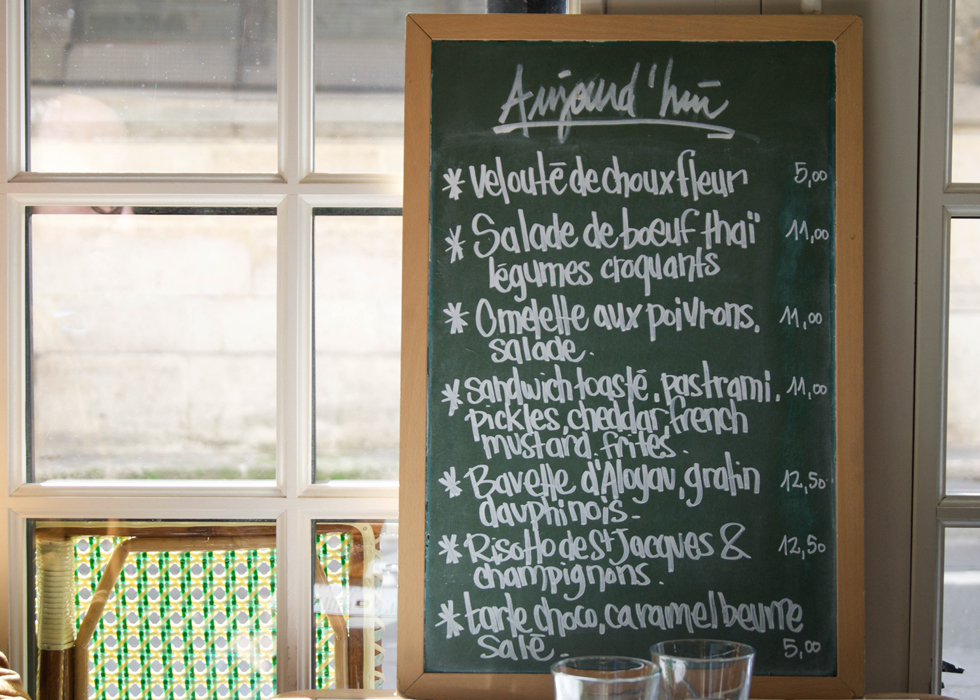 Aujourd'hui
* Velouté de choux fleur 5,00
* Salade de bœuf thaï 11,00
légumes croquants
* Omelette aux poivrons. 11,00
salade.
* sandwich toasté. pastrami. 11,00
pickles, cheddar, french
mustard. frites.
* Bavette d'Aloyau, gratin 12,50
dauphinois.
* Risotto de St Jacques & 12,50
champignons.
* tarte choco, caramel beurre
salé. 5,00